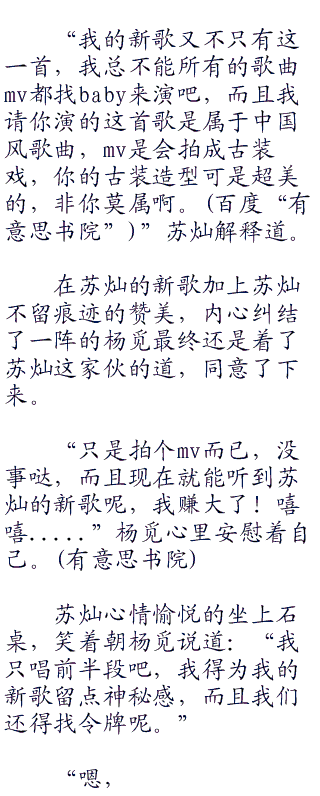 “我的新歌又不只有这
一首，我总不能所有的歌曲
mv都找baby来演吧，而且我
请你演的这首歌是属于中国
风歌曲，mv是会拍成古装
戏，你的古装造型可是超美
的，非你莫属啊。(百度“有
意思书院”)”苏灿解释道。
在苏灿的新歌加上苏灿
不留痕迹的赞美，内心纠结
了一阵的杨觅最终还是着了
苏灿这家伙的道，同意了下
来。
“只是拍个mv而已，没
事哒，而且现在就能听到苏
灿的新歌呢，我赚大了！嘻
嘻.....”杨觅心里安慰着自
己。(有意思书院)
苏灿心情愉悦的坐上石
桌，笑着朝杨觅说道：“我
只唱前半段吧，我得为我的
新歌留点神秘感，而且我们
还得找令牌呢。”
“嗯，